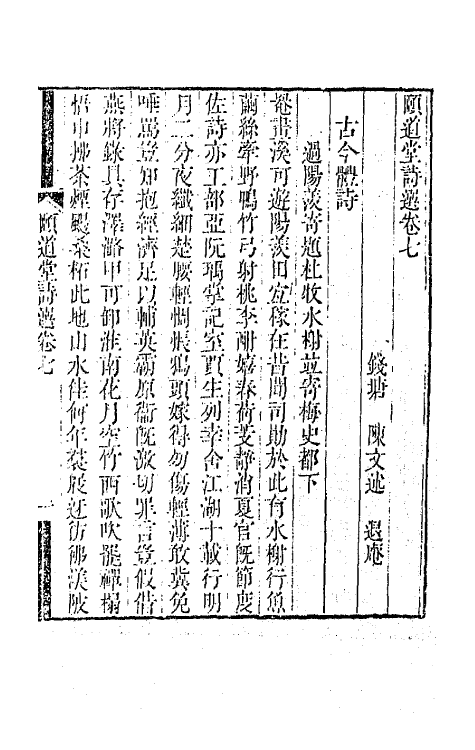 頤道堂詩選卷七
錢塘 陳文述 退庵
古今體詩
過陽羨寄題杜牧水榭並寄梅史都下
罨畫溪可遊陽羨田宜稼在昔聞司勛於此有水榭行魚
繭絲牽野鴨竹弓射桃李酣嬉春荷芰靜消夏官旣節度
佐詩亦工部亞阮瑀掌記室賈生列幸舍江湖十載行明
月二分夜纖細楚腰輕惆悵鴉頭嫁得勿傷輕薄敢冀免
唾罵豈知抱經濟足以輔英霸原衞旣激切罪言豈假借
燕將錄具存澤潞甲可卸淮南花月空竹西歌吹罷禪榻
悟中拂茶煙颺桑柘此地山水佳何年裘屐迓彷彿渼陂
頤道堂詩選卷七 一